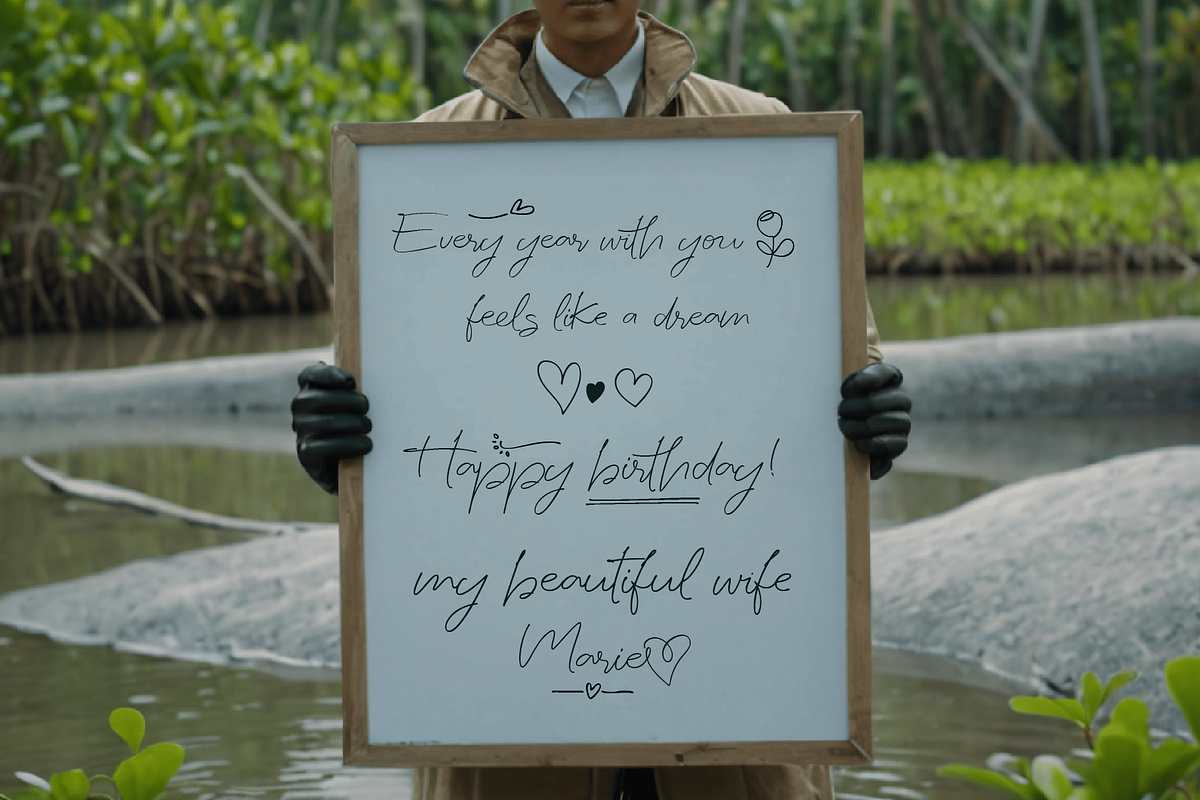 Every year with you
feels like a dream
Happy birthday!
my beautiful wife
Marie